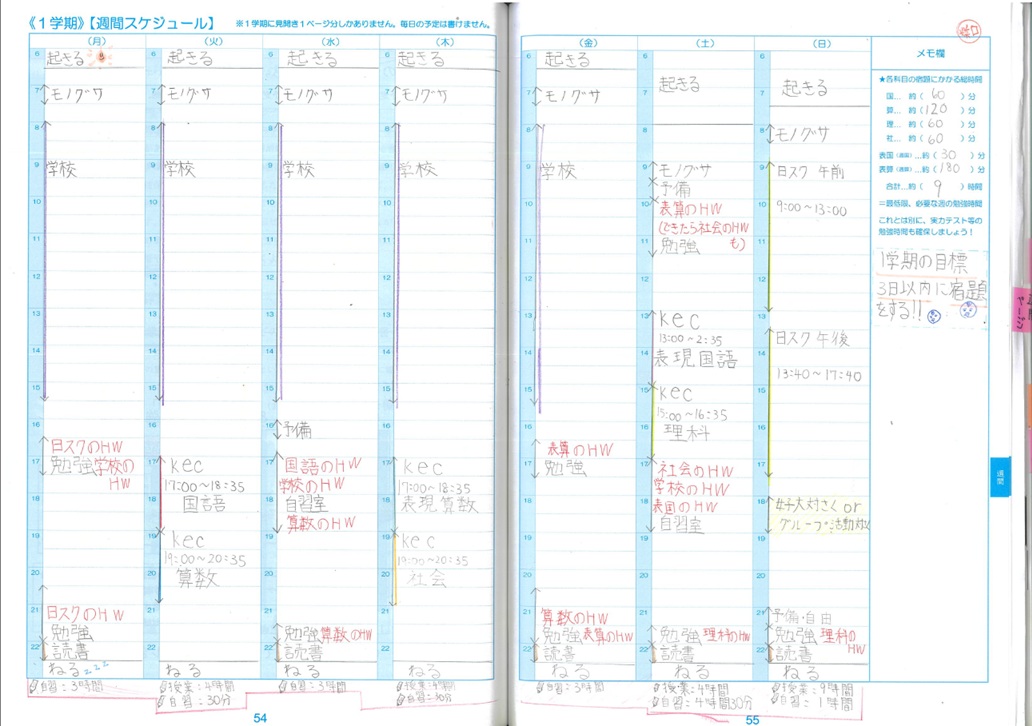 《1学期》【週間スケジュール】
※1学期に見開き1ページ分しかありません。毎日の予定は書けません。
(月)
起きる
モノグサ
学校
日スクのHW
勉強学校の
HW
日スクのHW
勉強
読書
ねる
自習:3時間
(火)
起きる
モノグサ
学校
kec
17:00~18:35
国語
kec
19:00~20:35
算数
ねる
授業:4時間
自習:30分
(水)
起きる
モノグサ
学校
予備
国語のHW
学校のHW
自習室
算数のHW
勉強算数のHW
読書
ねる
自習:3時間
(木)
起きる
モノグサ
学校
kec
17:00~18:35
表現算数
kec
19:00~20:35
社会
ねる
授業:4時間
自習:30分
54
(金)
起きる
モノグサ
学校
表算のHW
勉強
算数のHW
勉強表算のHW
読書
ねる
自習:3時間
(土)
起きる
モノグサ
予備
表算のHW
(できたら社会のHW
も)
勉強
kec
13:00~2:35
表現国語
kec
15:00~16:35
理科
社会のHW
学校のHW
表国のHW
自習室
勉強理科のHW
読書
ねる
授業:4時間
自習:4時間30分
(日)
起きる
モノグサ
日スク 午前
9:00~13:00
日スク午後
13:40~17:40
女子大対さく or
グループ活動対
予備・自由
勉強理科の
HW
読書
ねる
授業:9時間
自習:1時間
55
メモ欄
★各科目の宿題にかかる総時間
国… 約(60)分
算… 約(120)分
理… 約(60)分
社… 約(60)分
表国(通塾)…約(30)分
表算(通塾)…約(180)分
合計…約(9)時間
=最低限、必要な週の勉強時間
これとは別に、実力テスト等の
勉強時間も確保しましょう!
1学期の目標
3日以内に宿題
をする!!
週間